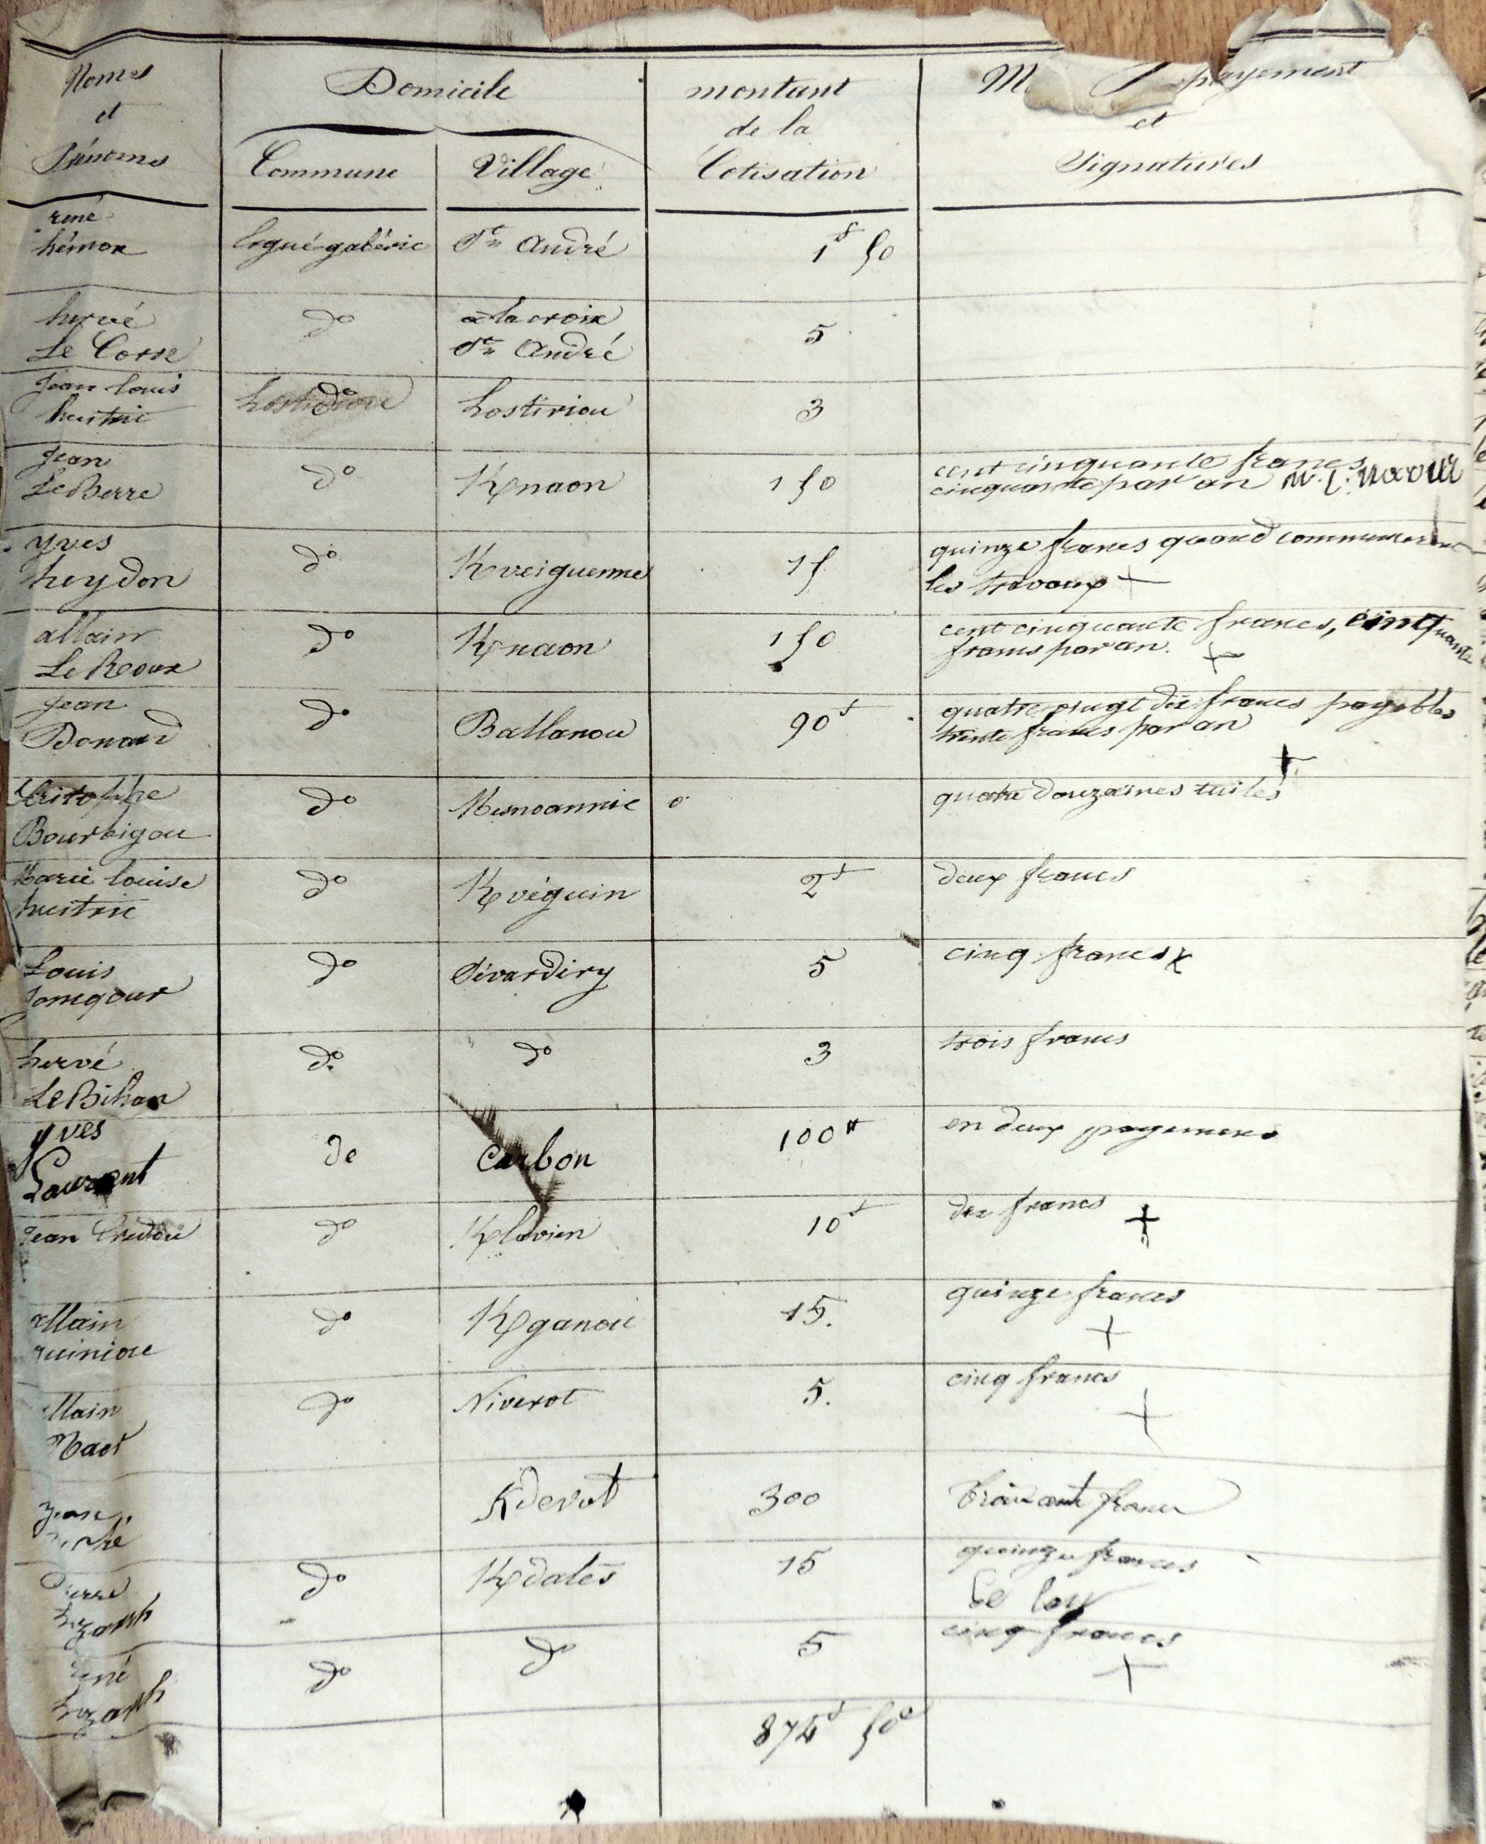 Nomes
et
Prénoms
Domicile
Commune
Village
montant
de la
Cotisation
payement
et
Signatures
rené
hémon
Ergué gabéric
St André
1f 50
hervé
Le Corre
do
a la croix
St André
5
Jean louis
huitric
do
Lostiriou
3
Jean
Le Berre
do
Knaon
150
cent cinquante francs
cinquante par an
yves
heydon
do
Kveiguennes
15
quinze francs quand commenceront
les travaux +
allain
Le Roux
do
Knaon
150
cent cinquante francs, cinquante
francs par an. +
Jean
Donard
do
Ballanou
90f
quatre vingt dix francs payables
trente francs par an
+
Bourbigou
do
0
quatre douzaines tuiles
Marie louise
huitric
do
Kvéguin
2f
deux francs
Louis
do
5
cinq francs x
hervé
Le Bihan
do
do
3
trois francs
yves
Laurent
de
Carbon
100
en deux payemens
Jean Credou
do
10f
dix francs +
allain
quiniou
do
15.
quinze francs
+
allain
do
Niverot
5.
cinq francs
+
Jean
Kdevot
300
trois cent francs
Pierre
do
Kdalés
15
quinze francs
rené
do
do
5
cinq francs
+
874f 50c